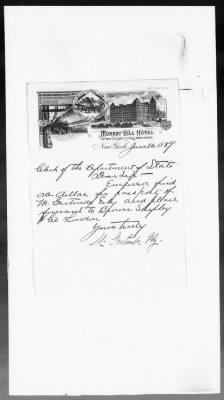 Murray Hill Hotel
New York, June 26 1889
Clerk of the Department of State
Dear Sir—
Enclosed find
one dollar for passport of
M. Gertrude and please
forward to Brown Shipley
& Co London
Yours truly
M. Gertrude